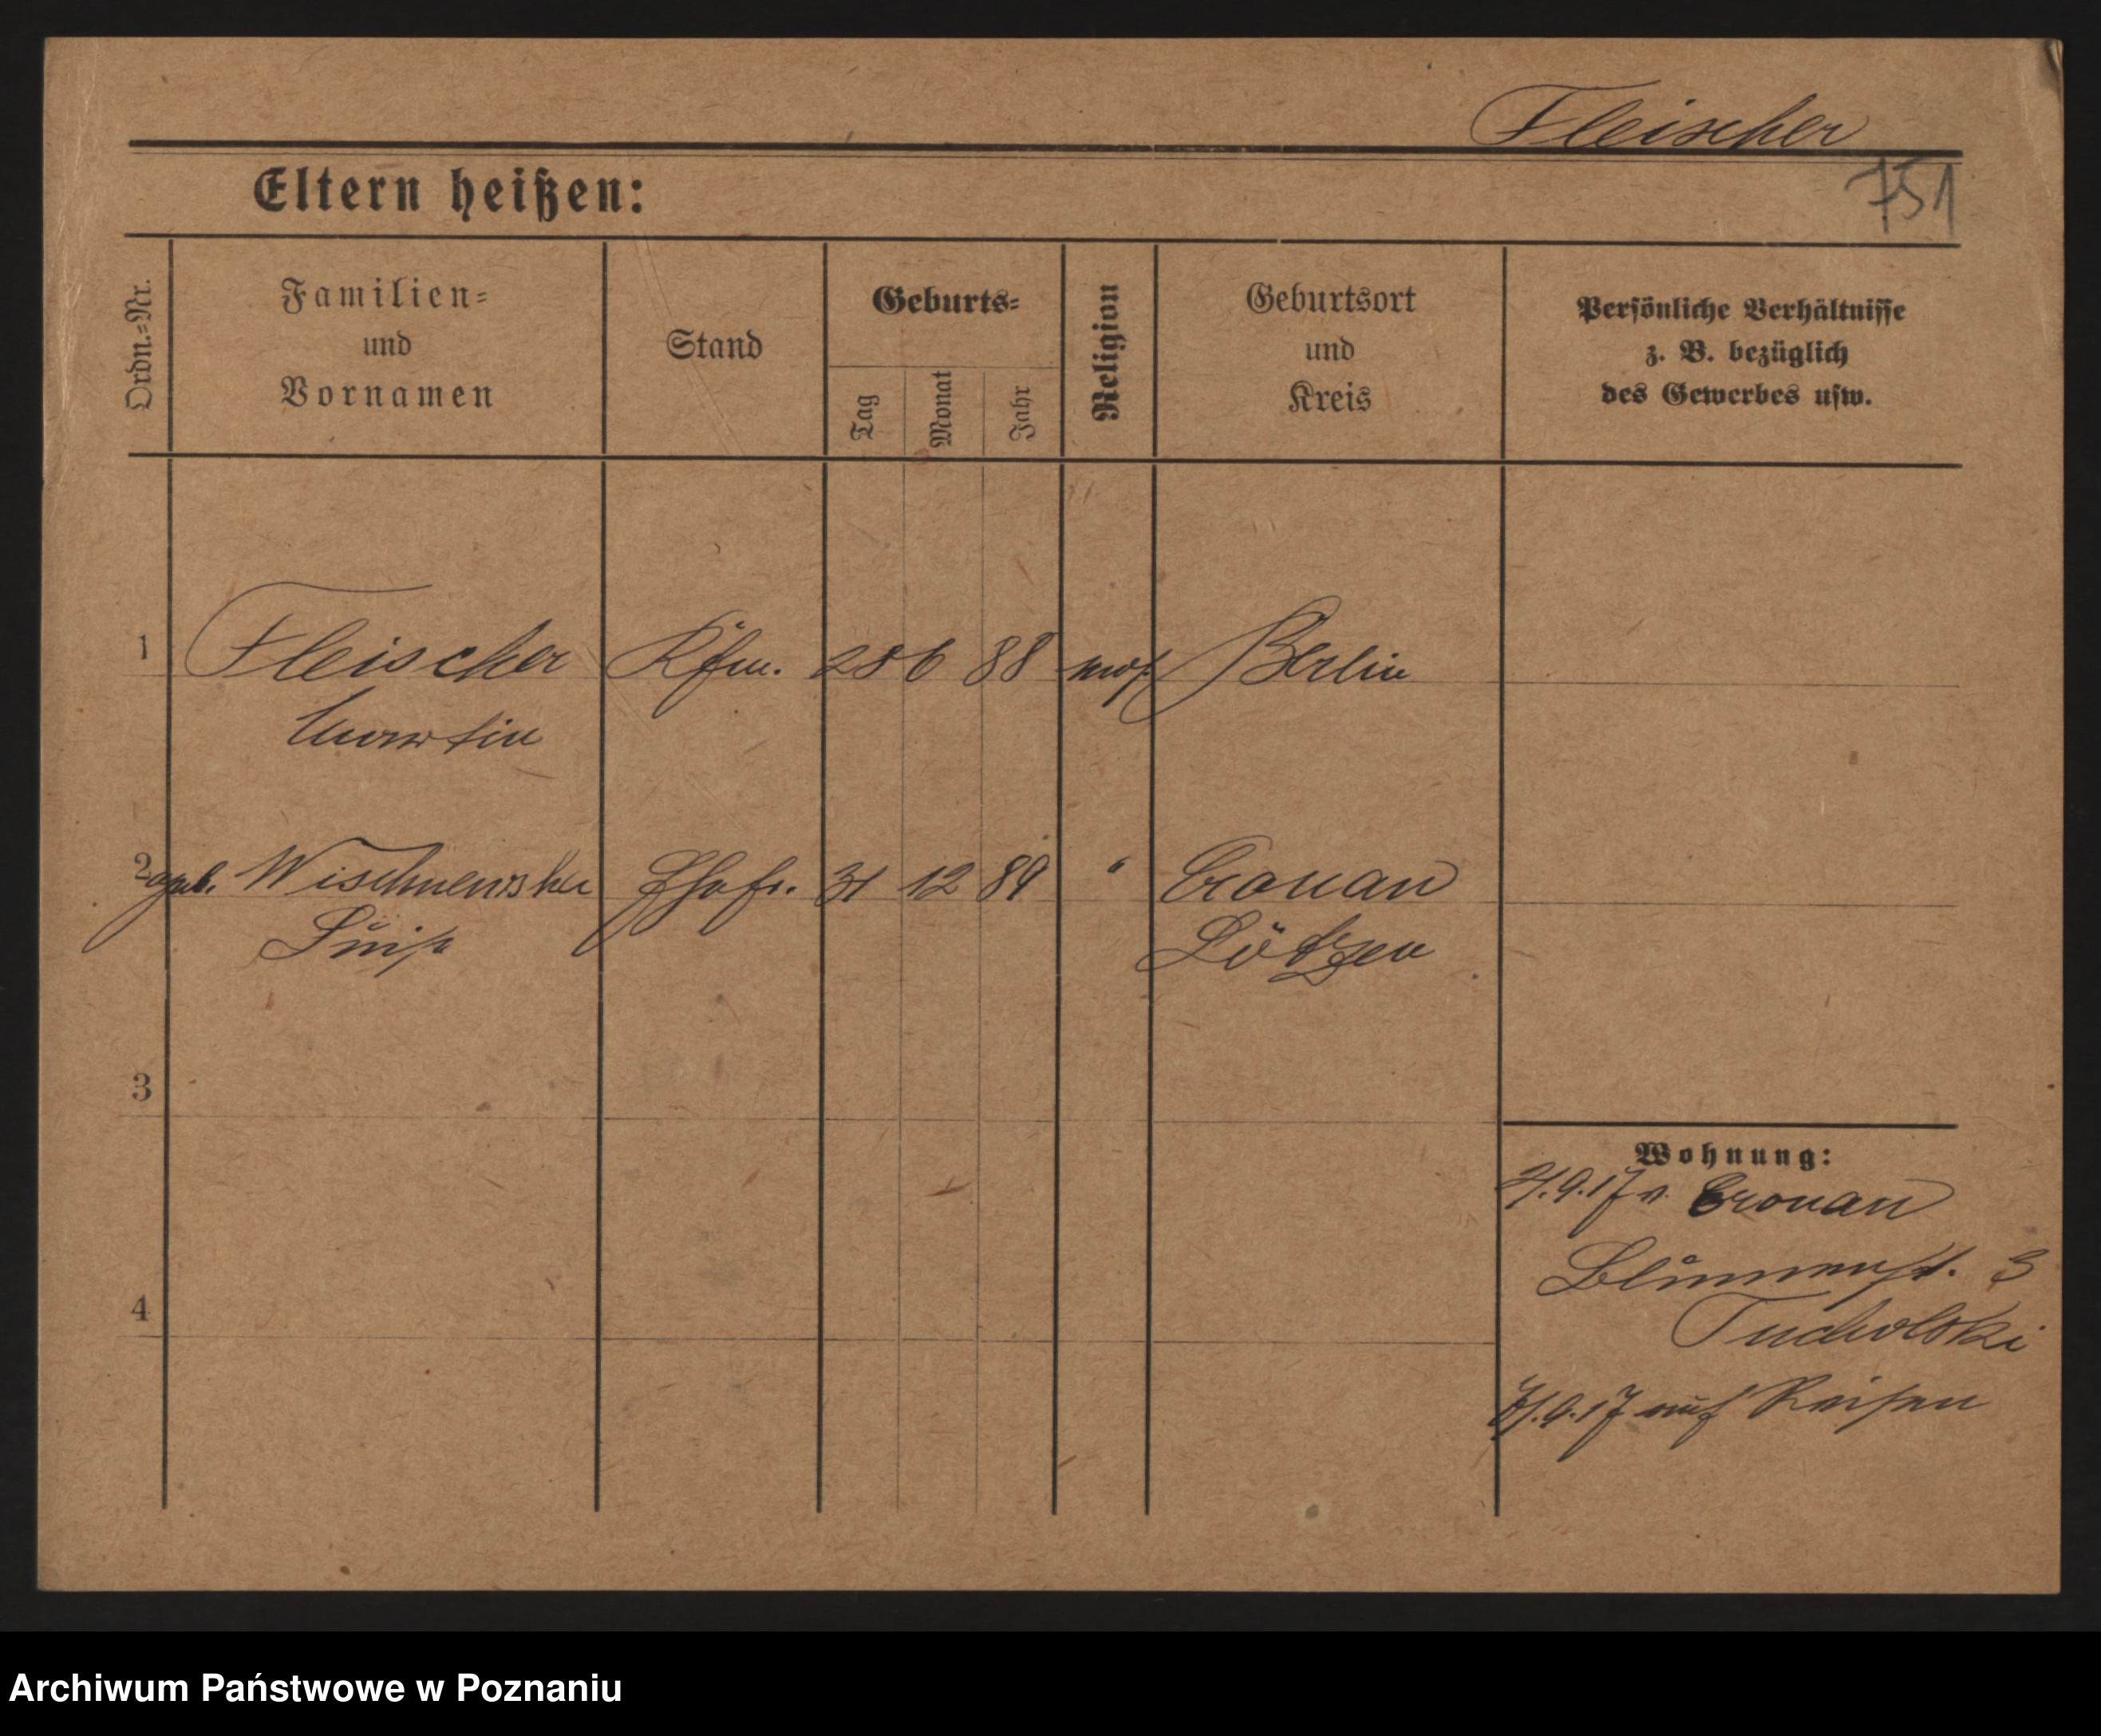 Fleischer
751
Eltern heißen:
Ordn.=Nr.
Familien=
und
Vornamen
Stand
Geburts=
Tag
Monat
Jahr
Religion
Geburtsort
und
Kreis
Persönliche Verhältnisse
z. B. bezüglich
des Gewerbes usw.
1 Fleischer Kfm. 28 6 88 Berlin
Martin
2 geb. Wischnewski Ehefr. 31 12 89 " Cronau
Luise Lötzen
3
4
Wohnung:
9.17 v. Cronau
Blumenst. 3
Tucholski
9.17 auf Reisen
Archiwum Państwowe w Poznaniu